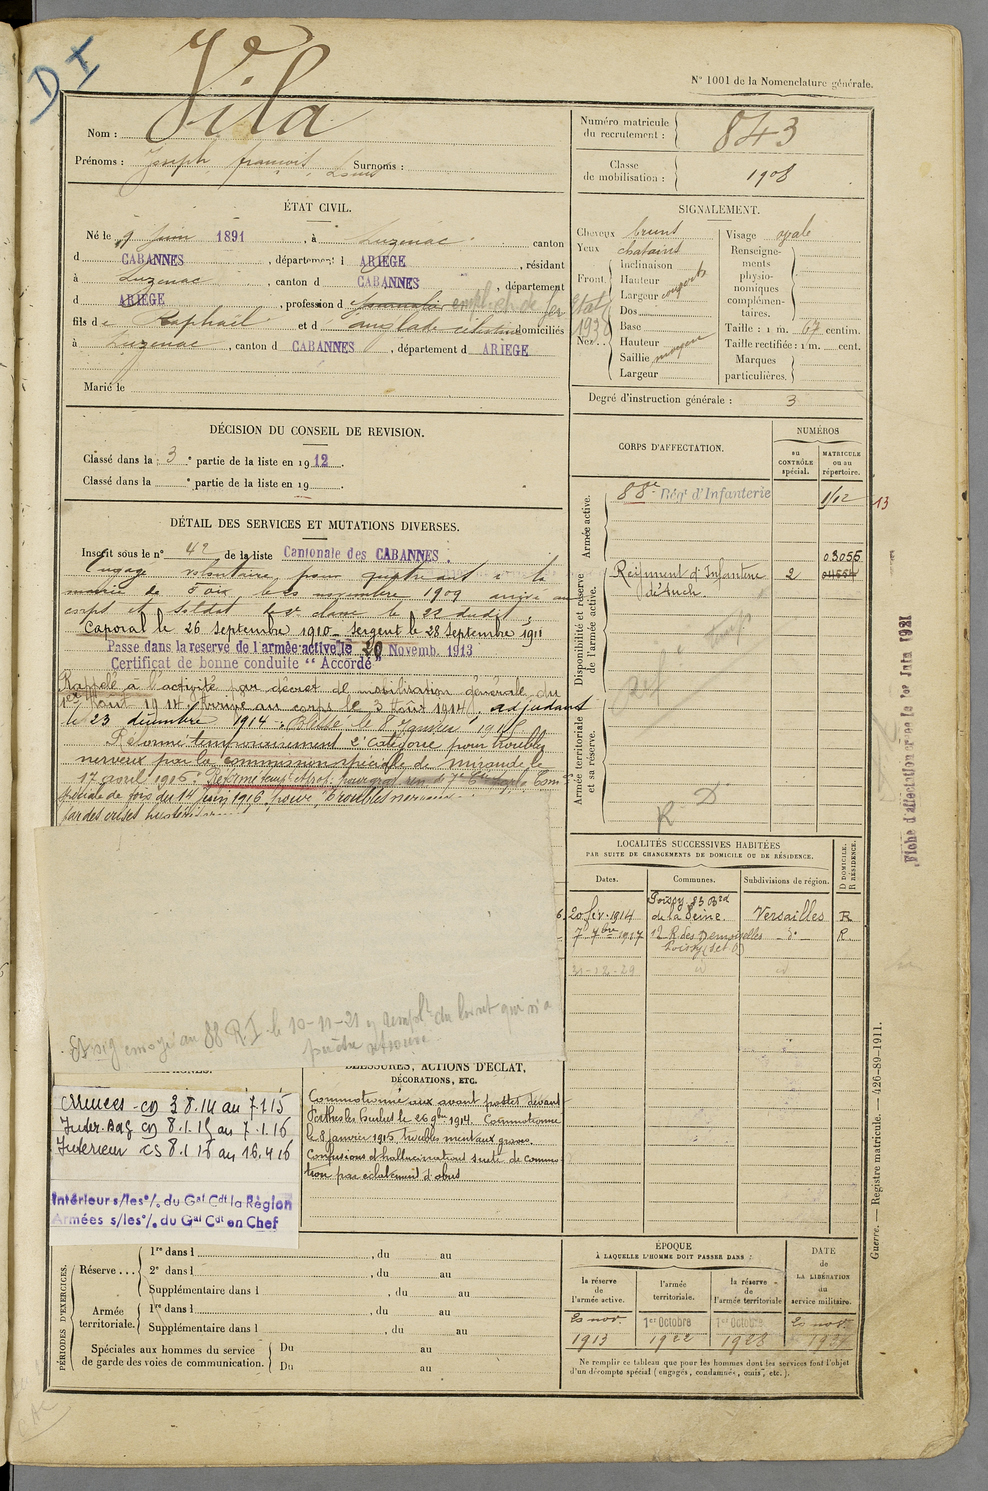 D I
N° 1001 de la Nomenclature générale.
Nom : Vila
Prénoms : Joseph françois Louis Surnoms :
Numéro matricule du recrutement : 843
Classe de mobilisation : 1908
ÉTAT CIVIL.
Né le 9 Juin 1891, à Luzenac canton
d CABANNES, département d ARIEGE, résidant
à Luzenac, canton d CABANNES, département
d ARIEGE, profession d journalier employé de fer Etat 193
fils de Raphaël et d anglade domiciliés
à Luzenac, canton d CABANNES, département d ARIEGE
Marié le
SIGNALEMENT.
Cheveux bruns
Yeux chatains
Front
Inclinaison
Hauteur
Largeur
Nez
Dos
Base
Hauteur
Saillie moyen
Largeur
Visage ovale
Renseignements physionomiques complémentaires.
Taille : 1 m. 67 centim.
Taille rectifiée : 1 m. cent.
Marques particulières.
Degré d'instruction générale : 3
DÉCISION DU CONSEIL DE REVISION.
Classé dans la 3e partie de la liste en 1912.
Classé dans la e partie de la liste en 19
CORPS D'AFFECTATION.
NUMÉROS
au CONTRÔLE spécial.
MATRICULE ou au répertoire.
Armée active.
88e Rég. d'Infanterie 1/12
13
Disponibilité et réserve de l'armée active.
Régiment d'Infanterie d'Auch. 2 03055
Armée territoriale et sa réserve.
R D
DÉTAIL DES SERVICES ET MUTATIONS DIVERSES.
Inscrit sous le n° 42 de la liste Cantonale des CABANNES.
Engagé volontaire pour quatre ans à la
mairie de Foix, le novembre 1909 arrivé au
corps et soldat de 2e classe le 22 dudit,
Caporal le 26 Septembre 1910 Sergent le 28 Septembre 1911
Passé dans la réserve de l'armée active le 20 Novemb. 1913
Certificat de bonne conduite "Accordé"
Rappelé à l'activité par décret de mobilisation générale du
1er Août 1914. Arrivé au corps le 3 Août 1914, adjudant
le 23 décembre 1914. Blessé le 8 Janvier 1915
Réformé temporairement 2e Catégorie pour troubles
nerveux par la commission spéciale de Mirande le
17 avril 1916. Réformé temp.
spéciale de foix du 14 juin 1916, pour "troubles
par des crises
LOCALITÉS SUCCESSIVES HABITÉES
PAR SUITE DE CHANGEMENTS DE DOMICILE OU DE RÉSIDENCE.
Dates. Communes. Subdivisions de région. D DOMICILE. R RÉSIDENCE.
20 fév. 1914 Poissy 83 Bd de la Seine. Versailles R
7 7bre 1917 12 R. des Demoiselles Poissy (S et O) - d° - R.
31-12-29 id id
envoyé au 88 R.I. le 10-11-21 du livret qui n'a
pu être retrouvé
BLESSURES, ACTIONS D'ÉCLAT,
DÉCORATIONS, ETC.
Commotionné aux avant postes devant
Perthes les Hurlus le 26 9bre 1914. Commotionné
le 8 janvier 1915 troubles mentaux graves.
Confusions et hallucinations suite de commo-
tion par éclatement d'obus
Armées - CD 3.8.14 au 7.1.15
Inter. Bag CD 8.1.15 au 7.1.16
Interieur CS 8.1.16 au 16.4.16
Intérieur s/les %. du Gal Cdt la Région
Armées s/les %. du Gal Cdt en Chef
PÉRIODES D'EXERCICES.
Réserve ...
1re dans l , du au
2e dans l , du au
Supplémentaire dans l , du au
Armée territoriale.
1re dans l , du au
Supplémentaire dans l , du au
Spéciales aux hommes du service de garde des voies de communication.
Du au
Du au
ÉPOQUE
À LAQUELLE L'HOMME DOIT PASSER DANS :
la réserve de l'armée active.
l'armée territoriale.
la réserve de l'armée territoriale
DATE de LA LIBÉRATION du service militaire.
20 nov. 1913
1er Octobre 1922
1er Octobre 1928
20 nov.
Ne remplir ce tableau que pour les hommes dont les services font l'objet
d'un décompte spécial (engagés, condamnés, omis, etc.).
Guerre. — Registre matricule. — 426-89-1911.
Fiche d'affectation créée le 1er Juin 1921